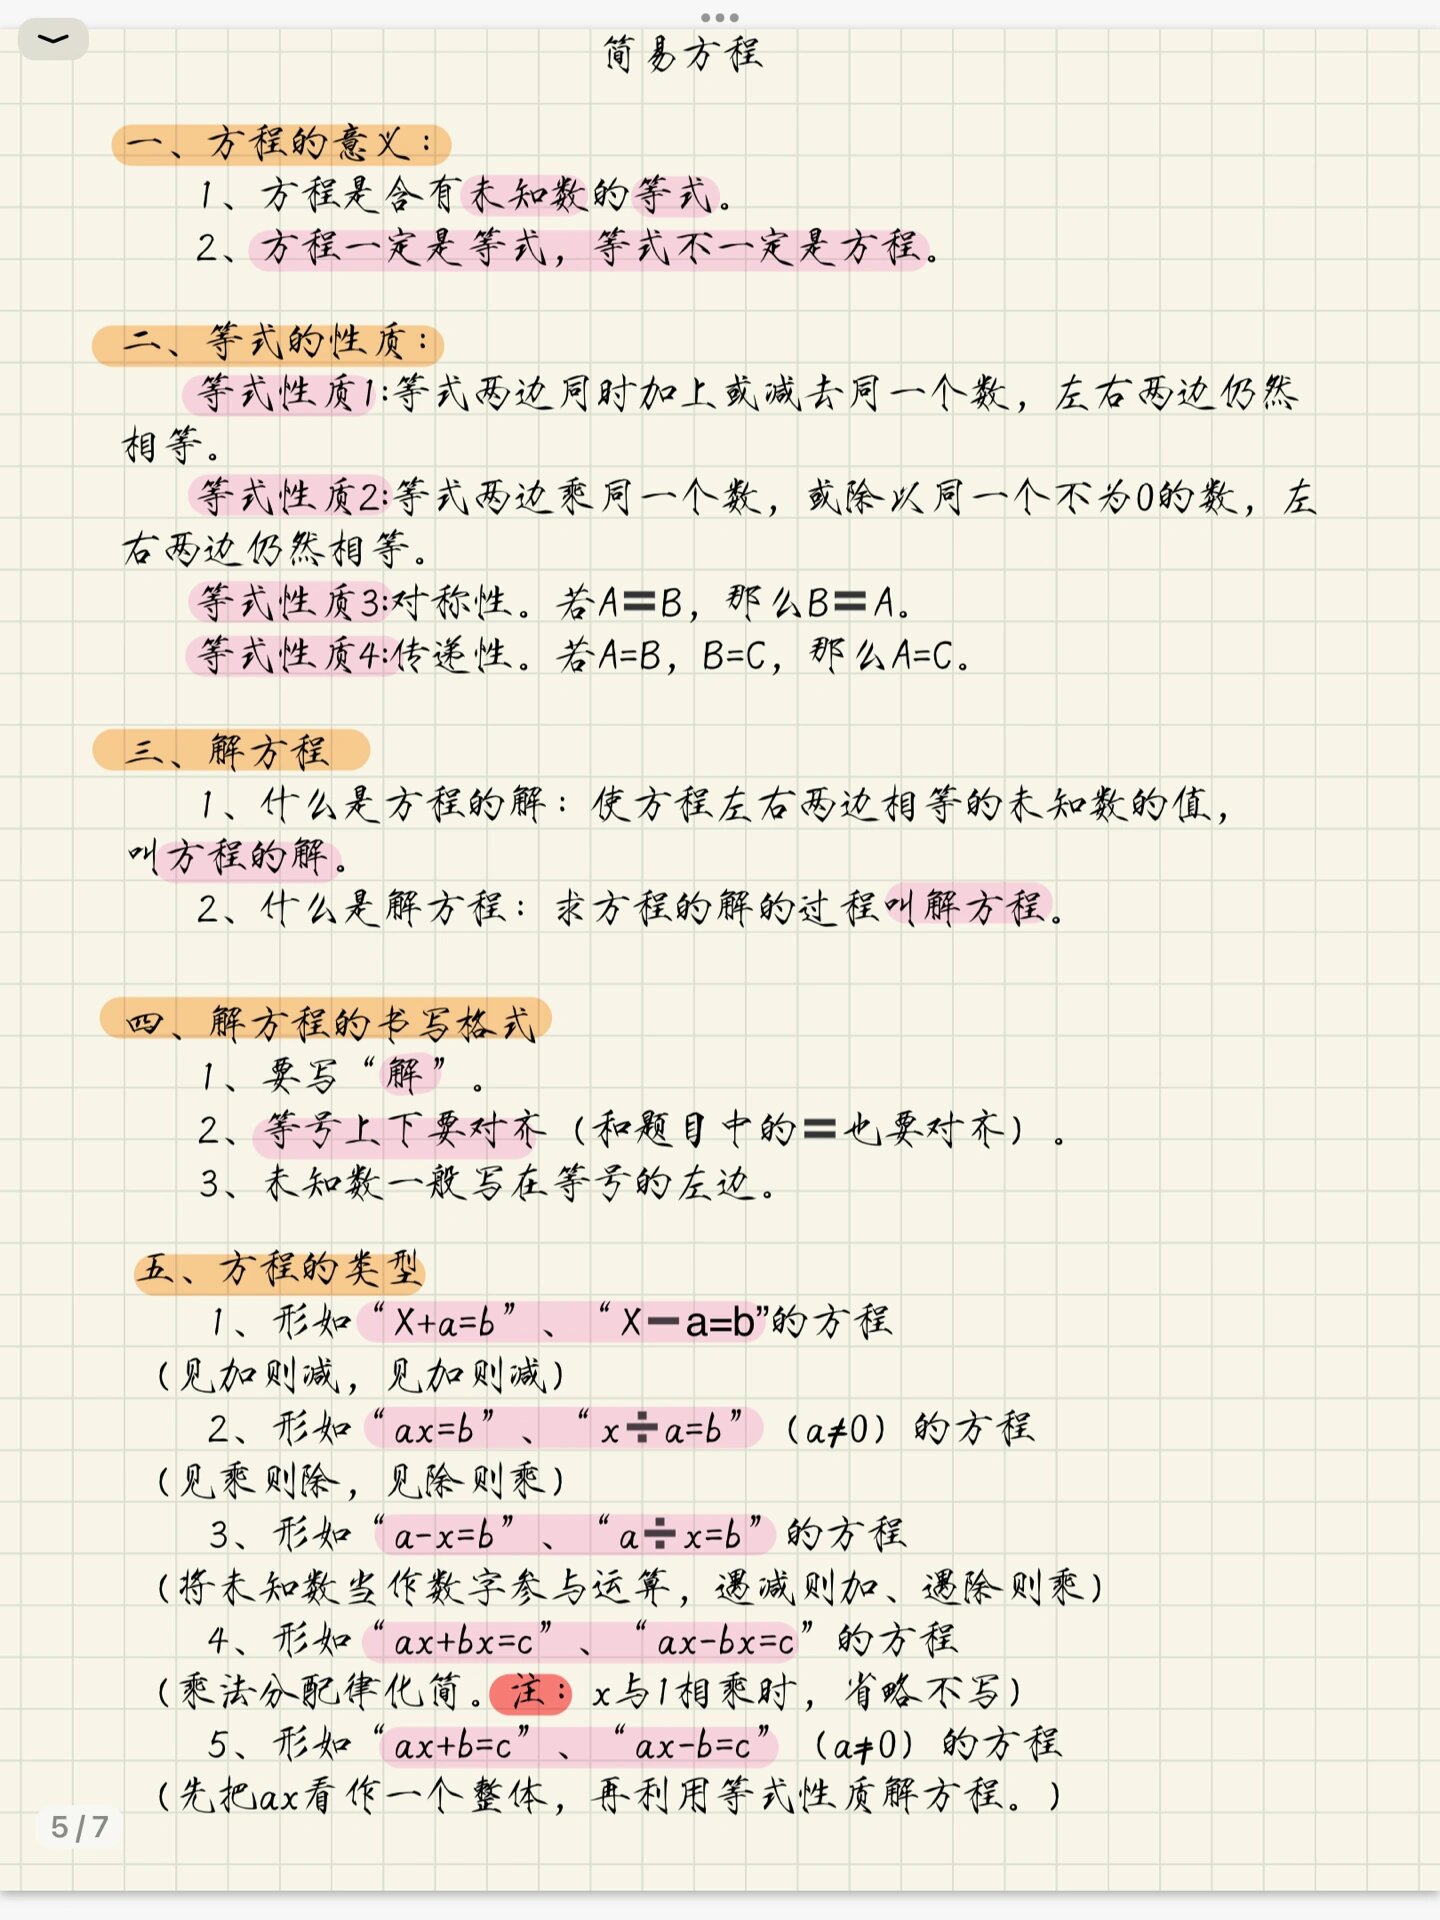 简易方程
一、方程的意义：
1、方程是含有未知数的等式。
2、方程一定是等式，等式不一定是方程。
二、等式的性质：
等式性质1:等式两边同时加上或减去同一个数，左右两边仍然
相等。
等式性质2:等式两边乘同一个数，或除以同一个不为0的数，左
右两边仍然相等。
等式性质3:对称性。若A=B，那么B=A。
等式性质4:传递性。若A=B，B=C，那么A=C。
三、解方程
1、什么是方程的解：使方程左右两边相等的未知数的值，
叫方程的解。
2、什么是解方程：求方程的解的过程叫解方程。
四、解方程的书写格式
1、要写“解”。
2、等号上下要对齐（和题目中的=也要对齐）。
3、未知数一般写在等号的左边。
五、方程的类型
1、形如“X+a=b”、“X－a=b”的方程
（见加则减，见加则减）
2、形如“ax=b”、“x÷a=b”（a≠0）的方程
（见乘则除，见除则乘）
3、形如“a-x=b”、“a÷x=b”的方程
（将未知数当作数字参与运算，遇减则加、遇除则乘）
4、形如“ax+bx=c”、“ax-bx=c”的方程
（乘法分配律化简。注：x与1相乘时，省略不写）
5、形如“ax+b=c”、“ax-b=c”（a≠0）的方程
（先把ax看作一个整体，再利用等式性质解方程。）
5/7